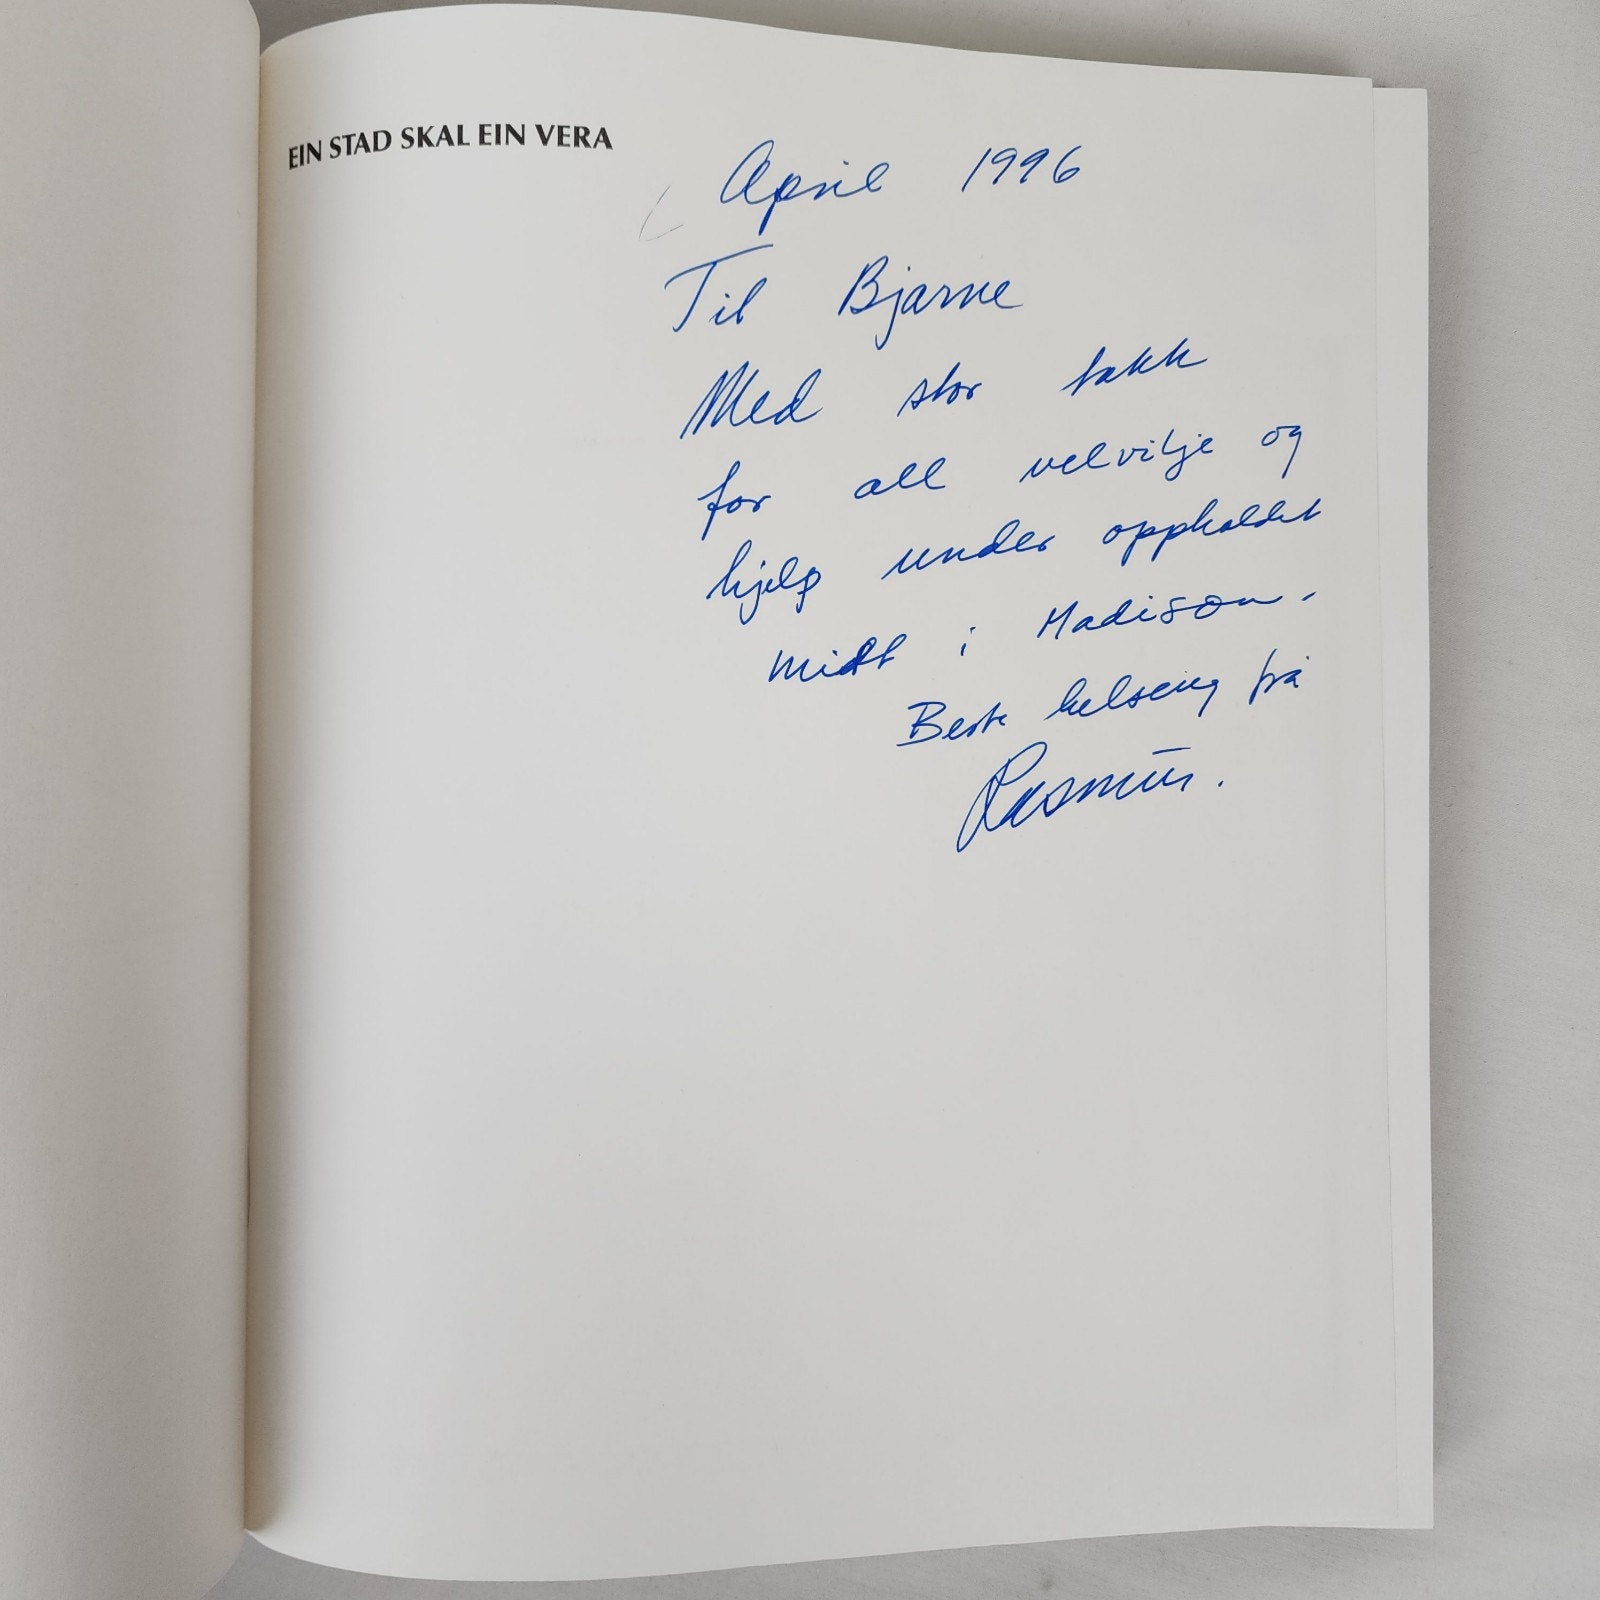 EIN STAD SKAL EIN VERA
April 1996
Til Bjarne
Med stor takk
for all velvilje og
hjelp under oppholdet
mitt i Madison.
Beste helsing frå
Rasmus.